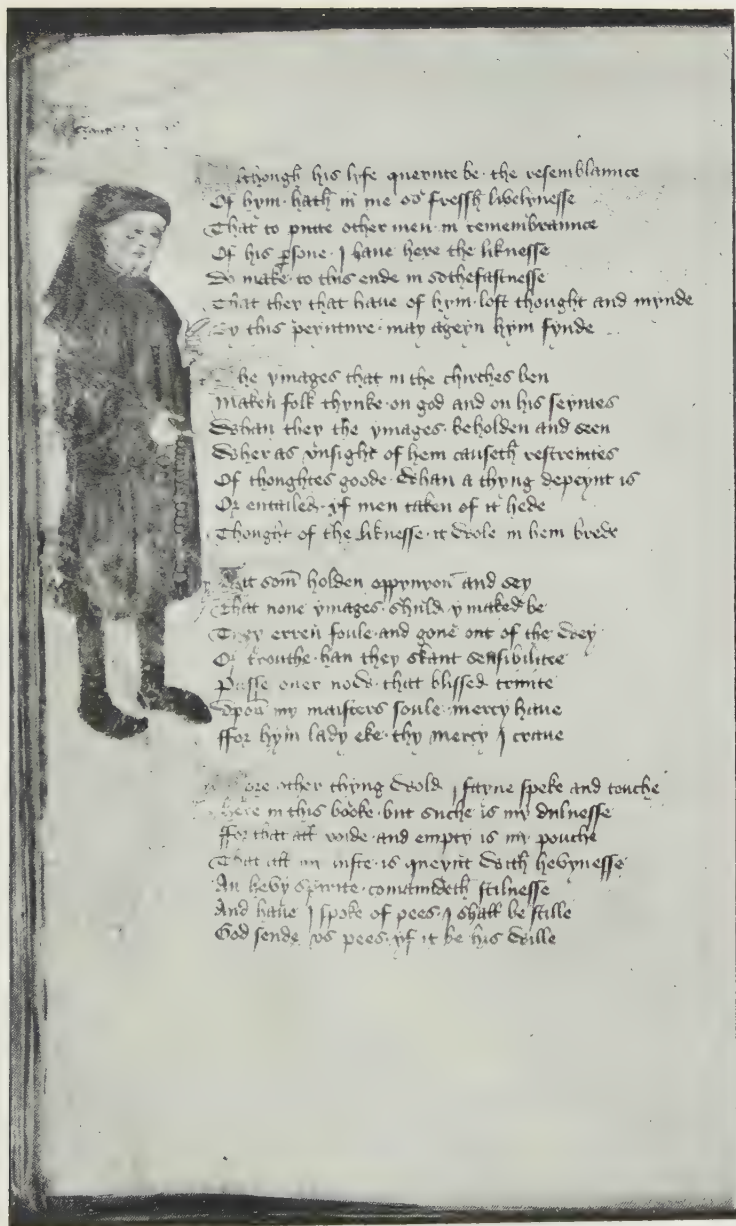 Although his lyfe queynte be the resemblaunce
Of hym hath in me so fressh livelynesse
That to putte other men in remembraunce
Of his psone I have here the liknesse
Do make to this ende in sothefastnesse
That they that have of hym loft thought and mynde
By this peynture may ageyn hym fynde
The ymages that in the chirches ben
Maken folk thynke on god and on his seyntes
Whan they the ymages beholden and seen
Wher as vnsight of hem causeth restreintes
Of thoughtes goode whan a thyng depeynt is
Or entailed yf men taken of it hede
Thought of the liknesse it wole in hem brede
Yit som holden oppynyon and sey
That none ymages shuld ymaked be
They erren foule and gone out of the wey
Of trouthe han they skant sensibilitee
Passe over now that blissed trinite
Vpon my maisters soule mercy have
ffor hym lady eke thy mercy I crave
More other thyng wold I fayne speke and touche
here in this booke but suche is my dulnesse
ffor that all voide and empty is my pouche
That all my luste is queynt with hevynesse
An hevy spirite comaundeth stilnesse
And have I spoke of pees I shall be stille
God sende vs pees yf it be his wille